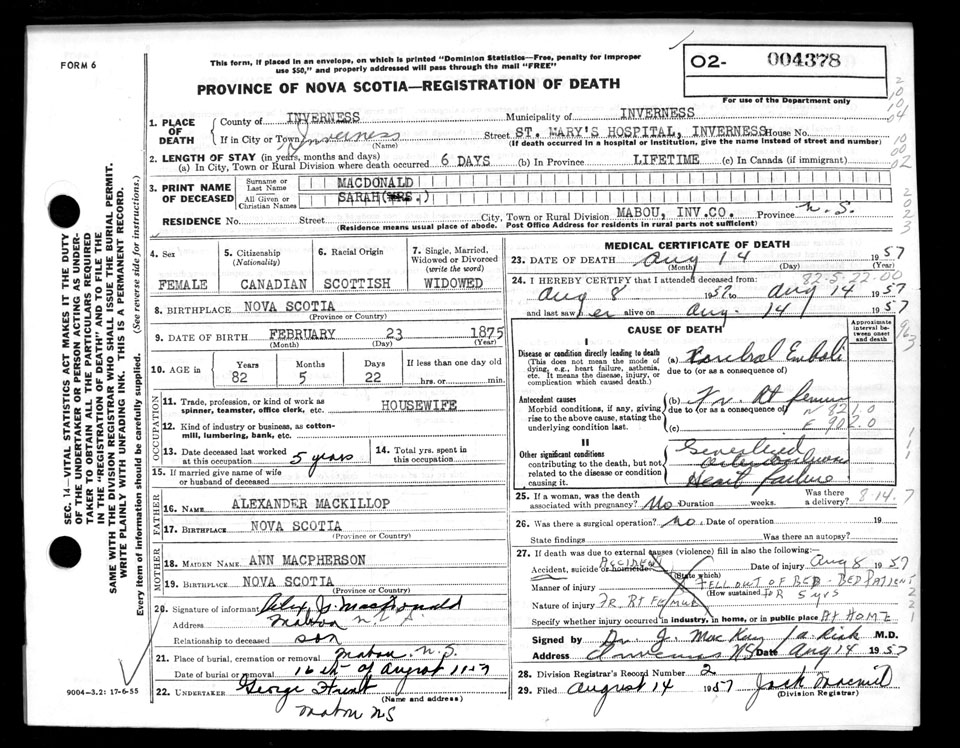 FORM 6
This form, if placed in an envelope, on which is printed "Dominion Statistics—Free, penalty for improper
use $50," and properly addressed will pass through the mail "FREE"
O2- 004378
PROVINCE OF NOVA SCOTIA—REGISTRATION OF DEATH
For use of the Department only
1. PLACE OF DEATH
County of INVERNESS Municipality of INVERNESS
If in City or Town Inverness (Name) Street ST. MARY'S HOSPITAL, INVERNESS House No.
(If death occurred in a hospital or institution, give the name instead of street and number)
2. LENGTH OF STAY (in years, months and days)
(a) In City, Town or Rural Division where death occurred 6 DAYS (b) In Province LIFETIME (c) In Canada (if immigrant)
3. PRINT NAME OF DECEASED
Surname or Last Name MACDONALD
All Given or Christian Names SARAH(MRS.)
RESIDENCE No. Street City, Town or Rural Division MABOU, INV.CO. Province N.S.
(Residence means usual place of abode. Post Office Address for residents in rural parts not sufficient)
4. Sex FEMALE
5. Citizenship (Nationality) CANADIAN
6. Racial Origin SCOTTISH
7. Single, Married, Widowed or Divorced (write the word) WIDOWED
8. BIRTHPLACE NOVA SCOTIA
(Province or Country)
9. DATE OF BIRTH FEBRUARY 23 1875
(Month) (Day) (Year)
10. AGE in Years 82 Months 5 Days 22 If less than one day old hrs. or min.
OCCUPATION
11. Trade, profession, or kind of work as spinner, teamster, office clerk, etc. HOUSEWIFE
12. Kind of industry or business, as cotton-mill, lumbering, bank, etc.
13. Date deceased last worked at this occupation 5 years
14. Total yrs. spent in this occupation
15. If married give name of wife or husband of deceased
FATHER
16. NAME ALEXANDER MACKILLOP
17. BIRTHPLACE NOVA SCOTIA
(Province or Country)
MOTHER
18. MAIDEN NAME ANN MACPHERSON
19. BIRTHPLACE NOVA SCOTIA
(Province or Country)
20. Signature of informant Alex J. MacDonald
Address Mabou N.S.
Relationship to deceased son
21. Place of burial, cremation or removal Mabou N.S.
Date of burial or removal 16th of August 1957
22. UNDERTAKER George
(Name and address)
Mabou NS
MEDICAL CERTIFICATE OF DEATH
23. DATE OF DEATH Aug 14 1957
(Month) (Day) (Year)
82-5-22-00
24. I HEREBY CERTIFY that I attended deceased from:
Aug 8 1957 to Aug 14 1957
and last saw her alive on Aug. 14 1957
CAUSE OF DEATH
Approximate interval between onset and death
I
Disease or condition directly leading to death (a) Cerebral Emboli
(This does not mean the mode of dying, e.g., heart failure, asthenia, etc. It means the disease, injury, or complication which caused death.)
due to (or as a consequence of)
Antecedent causes (b) Fr. Rt femur
Morbid conditions, if any, giving rise to the above cause, stating the underlying condition last.
due to (or as a consequence of) N 821.0
(c) E 902.0
II
Other significant conditions
contributing to the death, but not related to the disease or condition causing it.
Generalized
Heart failure
25. If a woman, was the death associated with pregnancy? No Duration weeks. Was there a delivery? 8-14-7
26. Was there a surgical operation? No. Date of operation 19
State findings Was there an autopsy?
27. If death was due to external causes (violence) fill in also the following:
Accident, suicide or homicide ACCIDENT (State which) Date of injury Aug 8 1957
Manner of injury FELL OUT OF BED - BED PATIENT
(How sustained) FOR 5 yrs
Nature of injury FR RT FEMUR
Specify whether injury occurred in industry, in home, or in public place AT HOME
Signed by Dr. J. MacKay M.D.
Address Inverness NS Date Aug 14 1957
28. Division Registrar's Record Number 2
29. Filed August 14 1957 Jack
(Division Registrar)
SEC. 14—VITAL STATISTICS ACT MAKES IT THE DUTY
OF THE UNDERTAKER OR PERSON ACTING AS UNDER-
TAKER TO OBTAIN ALL THE PARTICULARS REQUIRED
IN THE "REGISTRATION OF DEATH" AND TO FILE THE
SAME WITH THE DIVISION REGISTRAR WHO SHALL ISSUE THE BURIAL PERMIT.
WRITE PLAINLY WITH UNFADING INK. THIS IS A PERMANENT RECORD.
Every item of information should be carefully supplied. (See reverse side for instructions.)
9004-3.2: 17-6-55